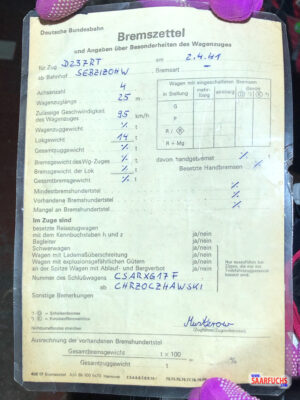 Deutsche Bundesbahn
Bremszettel
und Angaben über Besonderheiten des Wagenzuges
für Zug D237RT am 2.4.41
ab Bahnhof SEBZIZOHW Bremsart
Achsanzahl 4
Wagenzuglänge 25 m
Zulässige Geschwindigkeit des Wagenzuges 95 km/h
Wagenzuggewicht % t
Lokgewicht 14 t
Gesamtzuggewicht % t
Wagen mit eingeschalteten Bremsen
in Stellung mehrlösig einlösig davon
G
P
R / R
R + Mg
Bremsgewicht des Wg-Zuges % t
Bremsgewicht der Lok % t
Gesamtbremsgewicht % t
davon handgebremst %
Besetzte Handbremsen %
Mindestbremshundertstel %
Vorhandene Bremshundertstel %
Mangel an Bremshundertstel %
Im Zuge sind
besetzte Reisezugwagen mit dem Kennbuchstaben h und z ja/nein
Begleiter ja/nein
Schwerwagen ja/nein
Wagen mit Lademaßüberschreitung ja/nein
Wagen mit explosionsgefährlichen Gütern ja/nein
an der Spitze Wagen mit Ablauf- und Bergverbot ja/nein
Nummer des Schlußwagens CSARX617F
ab CHRZOCZHAWSKI
Sonstige Bemerkungen
Ausrechnung der vorhandenen Bremshundertstel
Gesamtbremsgewicht t x 100
Gesamtzuggewicht t
= %
408 17 Bremszettel
www.
SAARFUCHS
.com